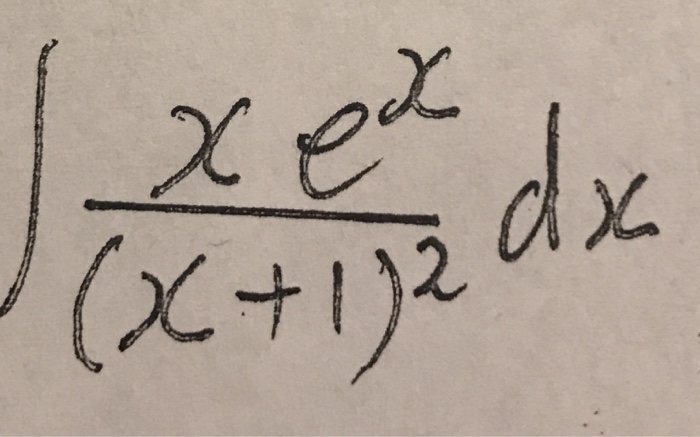 ∫ x e^x / (x+1)^2 dx